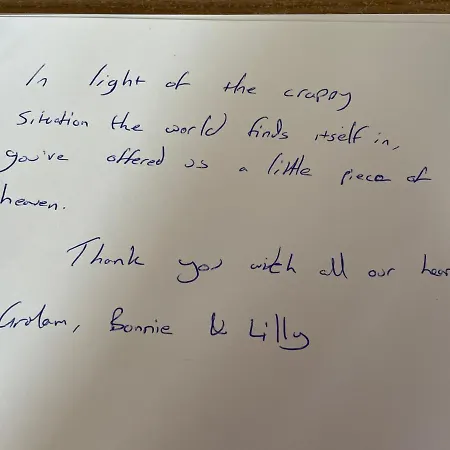 In light of the crappy
situation the world finds itself in,
you've offered us a little piece of
heaven.
Thank you with all our hear
Graham, Bonnie & Lilly